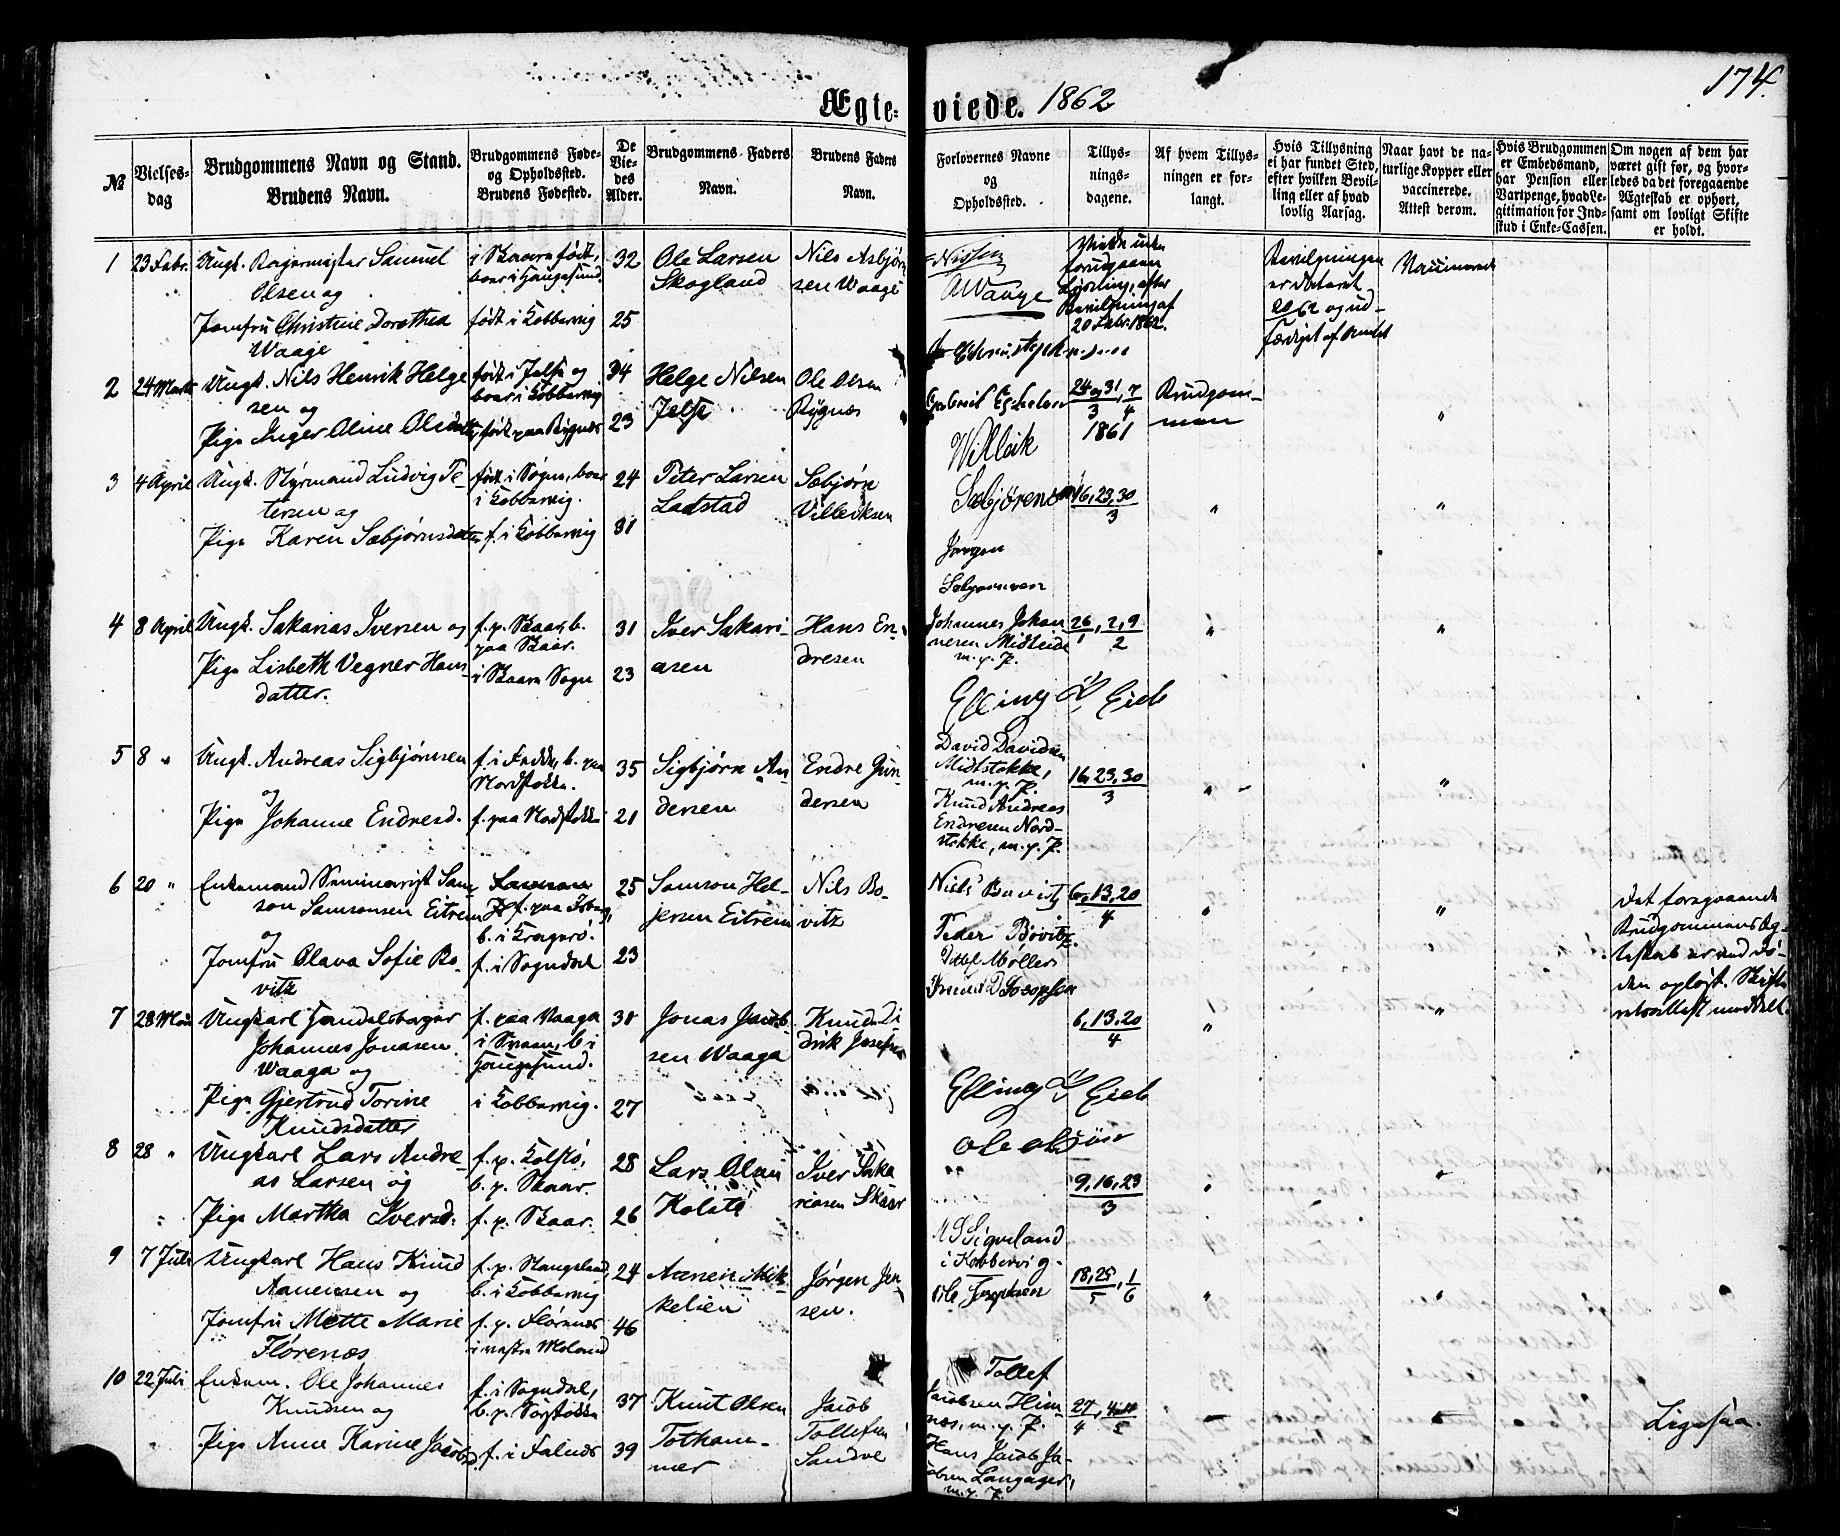 174.
Ægte-
viede. 1862
№
Vielses-
dag
Brudgommens Navn og Stand.
Brudens Navn.
Brudgommens Føde-
og Opholdssted.
Brudens Fødested.
De
Vie-
des
Alder.
Brudgommens Faders
Navn.
Brudens Faders
Navn.
Forlovernes Navne
og
Opholdssted.
Tillys-
nings-
dagene.
Af hvem Tillys-
ningen er for-
langt.
Hvis Tillysning
ei har fundet Sted,
efter hvilken Bevil-
ling eller af hvad
lovlig Aarsag.
Naar havt de na-
turlige Kopper eller
vaccinerede.
Attest derom.
Hvis Brudgommen
er Embedsmand,
har Pension eller
Vartpenge, hvad Le-
gitimation for Ind-
skud i Enke-Cassen.
Om nogen af dem har
været gift før, og hvor-
ledes da det foregaaende
Ægteskab er ophørt,
samt om lovligt Skifte
er holdt.
1
23 Febr.
Ungk. Samuel
Olsen og
Jomfru Christine Dorothea
Waage
i Skaare født,
boer i Haugesund.
født i Kobbervig
32
25
Ole Larsen
Skogland
Nils Asbjørn
sen Waage
Nissen
AWaage
Bevilgning af
20 Febr. 1862.
Bevilgningen
er dateret
20/2 62 og ud-
færdiget af Amtet
2
24 Marts
Ungk. Nils Henrik Helge
sen og
Pige Inger Oline Olsdatter
født i Jelse og
boer i Kobbervig
født paa Rygnæs
34
23
Helge Nilsen
Jelse
Ole Olsen
Rygnæs
24 og 31/3, 7/4
1861
Brudgom-
men
3
4 April
Ungk. Styrmand Ludvig Pe-
tersen og
Pige Karen Sæbjørnsdatter
født i Sogn, boer
i Kobbervig.
f. i Kobbervig
24
31
Peter Larsen
Ladstad
Sæbjørn
Villeiksen
Sæbjørensen
16, 23, 30
3
"
"
4
8 April
Ungk. Sakarias Iversen og
Pige Lisbeth Vegner Hans-
datter.
f. p. Skaar, b.
paa Skaar.
i Skaare Sogn
31
23
Iver Sakari-
asen
Hans En-
dresen
Johannes Johan
nesen Midteide
m. p. P.
Elling L Eide
26/1, 2, 9/2
"
"
5
8 "
Ungk. Andreas Sigbjørnsen
og
Pige Johanne Endresd.
b. paa
Nordstokke.
f. paa Nordstokke
35
21
Sigbjørn An
dersen
Endre Gun
dersen
David Davidsen
Midtstokke,
m. p. P.
Knud Andreas
Endresen Nord-
stokke, m. p. P.
16, 23, 30
3
"
"
6
20 "
Enkemand Seminarist Sam-
son Samsonsen Eitrem
og
Jomfru Olava Sofie Bo-
vitz
b. i Kragerø.
f. i Sogndal
25
23
Samson Hel-
jesen Eitrem
Nils Bo-
vitz
Niels Bovitz
Peder Bovitz
6, 13, 20
4
"
"
Det foregaaende
Brudgommens Æg-
teskab er ved Dø-
den opløst. Skifte
7
28 Mai
Ungkarl Handelsborger
Johannes Jonasen
Waaga og
Pige Gjertrud Torine
Knudsdatter
f. paa Vaaga
i Skaare, b. i
Haugesund.
i Kobbervig.
30
27
Jonas Jacob
sen Waaga
Knud Di
drik Josefsen
6, 13, 20
4
"
"
Elling L Eide
8
28 "
Ungkarl Lars Andre-
as Larsen og
Pige Martha Iversd.
f. p. Kolstø,
b. p. Skaar.
f. p. Skaar.
28
26
Lars Olsen
Kolstø
Iver Saka
riasen Skaar
9, 16, 23
3
"
"
9
7 Juli
Ungkarl Hans Knud
Aanensen og
Jomfru Mette Marie
Florenæs
f. p. Stangeland,
b. i Kobbervig
f. p. Florenæs
24
46
Aanen Mik-
kelsen
Jørgen Jen
sen.
i Kobbervig.
Ole Josephsen
18, 25/5, 1/6
"
"
10
22 Juli
Enkem. Ole Johannes
Knudsen og
Pige Anne Karine Jacobsd.
f. i Sogndal,
b. p. Sørstokke
f. i Falnæs
37
39
Knut Olsen
Totham-
mer
Jacob
Tollefsen
Sandve
Tollef
Jacobsen Him-
næs, m. p. P.
Hans Jacob Ja-
cobsen Langager,
m. p. P.
27/4, 4, 11/5
Ligesaa.